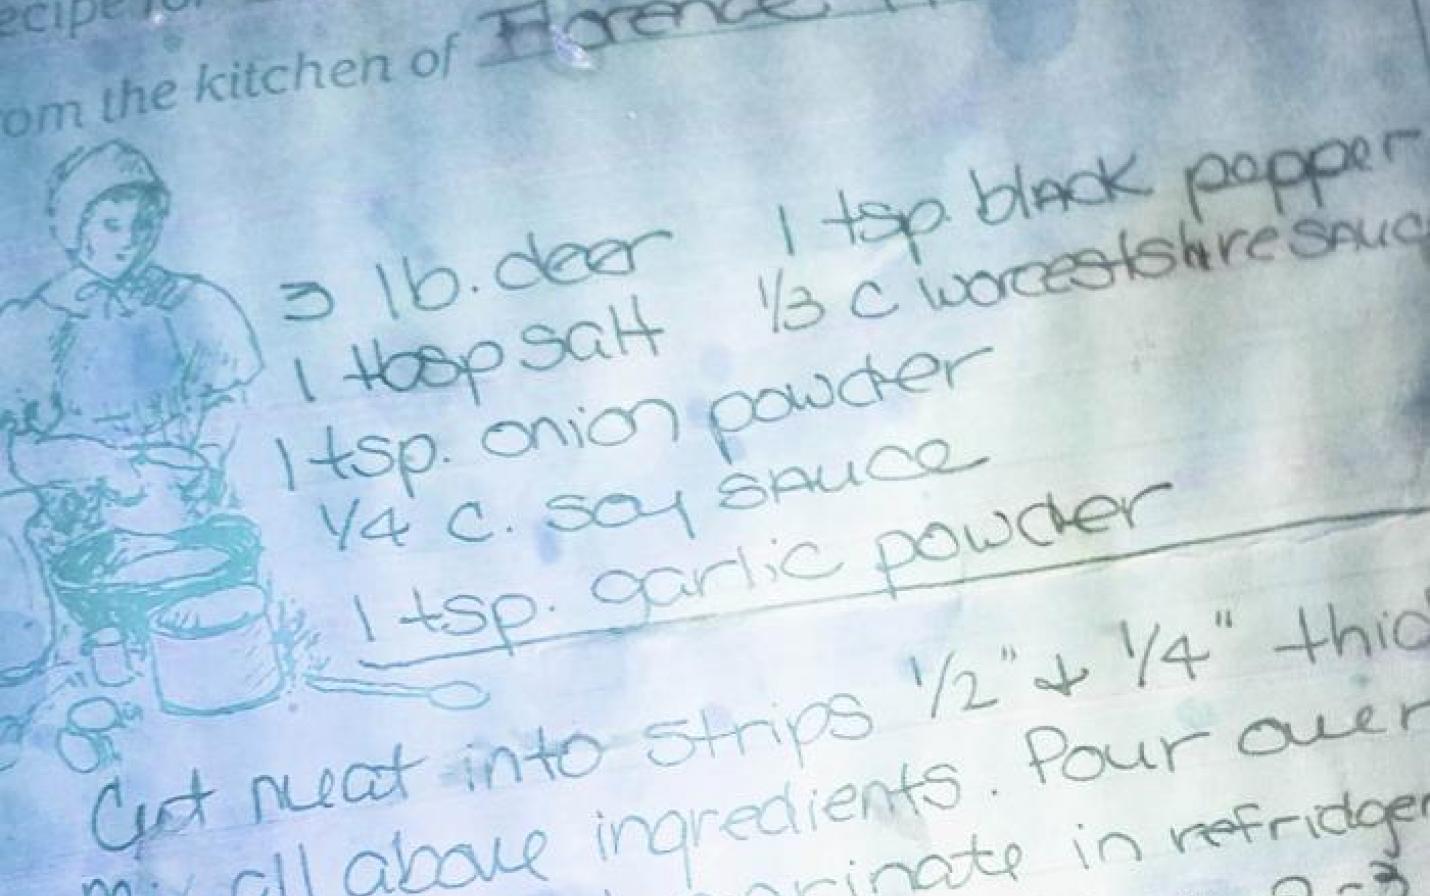 ecipe for
om the kitchen of Florence
3 lb. deer 1 tsp. black pepper
1 tbsp salt 1/3 c worcestshire sauc
1 tsp. onion powder
1/4 c. soy sauce
1 tsp. garlic powder
Cut meat into strips 1/2" & 1/4" thic
mix all above ingredients. Pour over
marinate in refridger
2-3